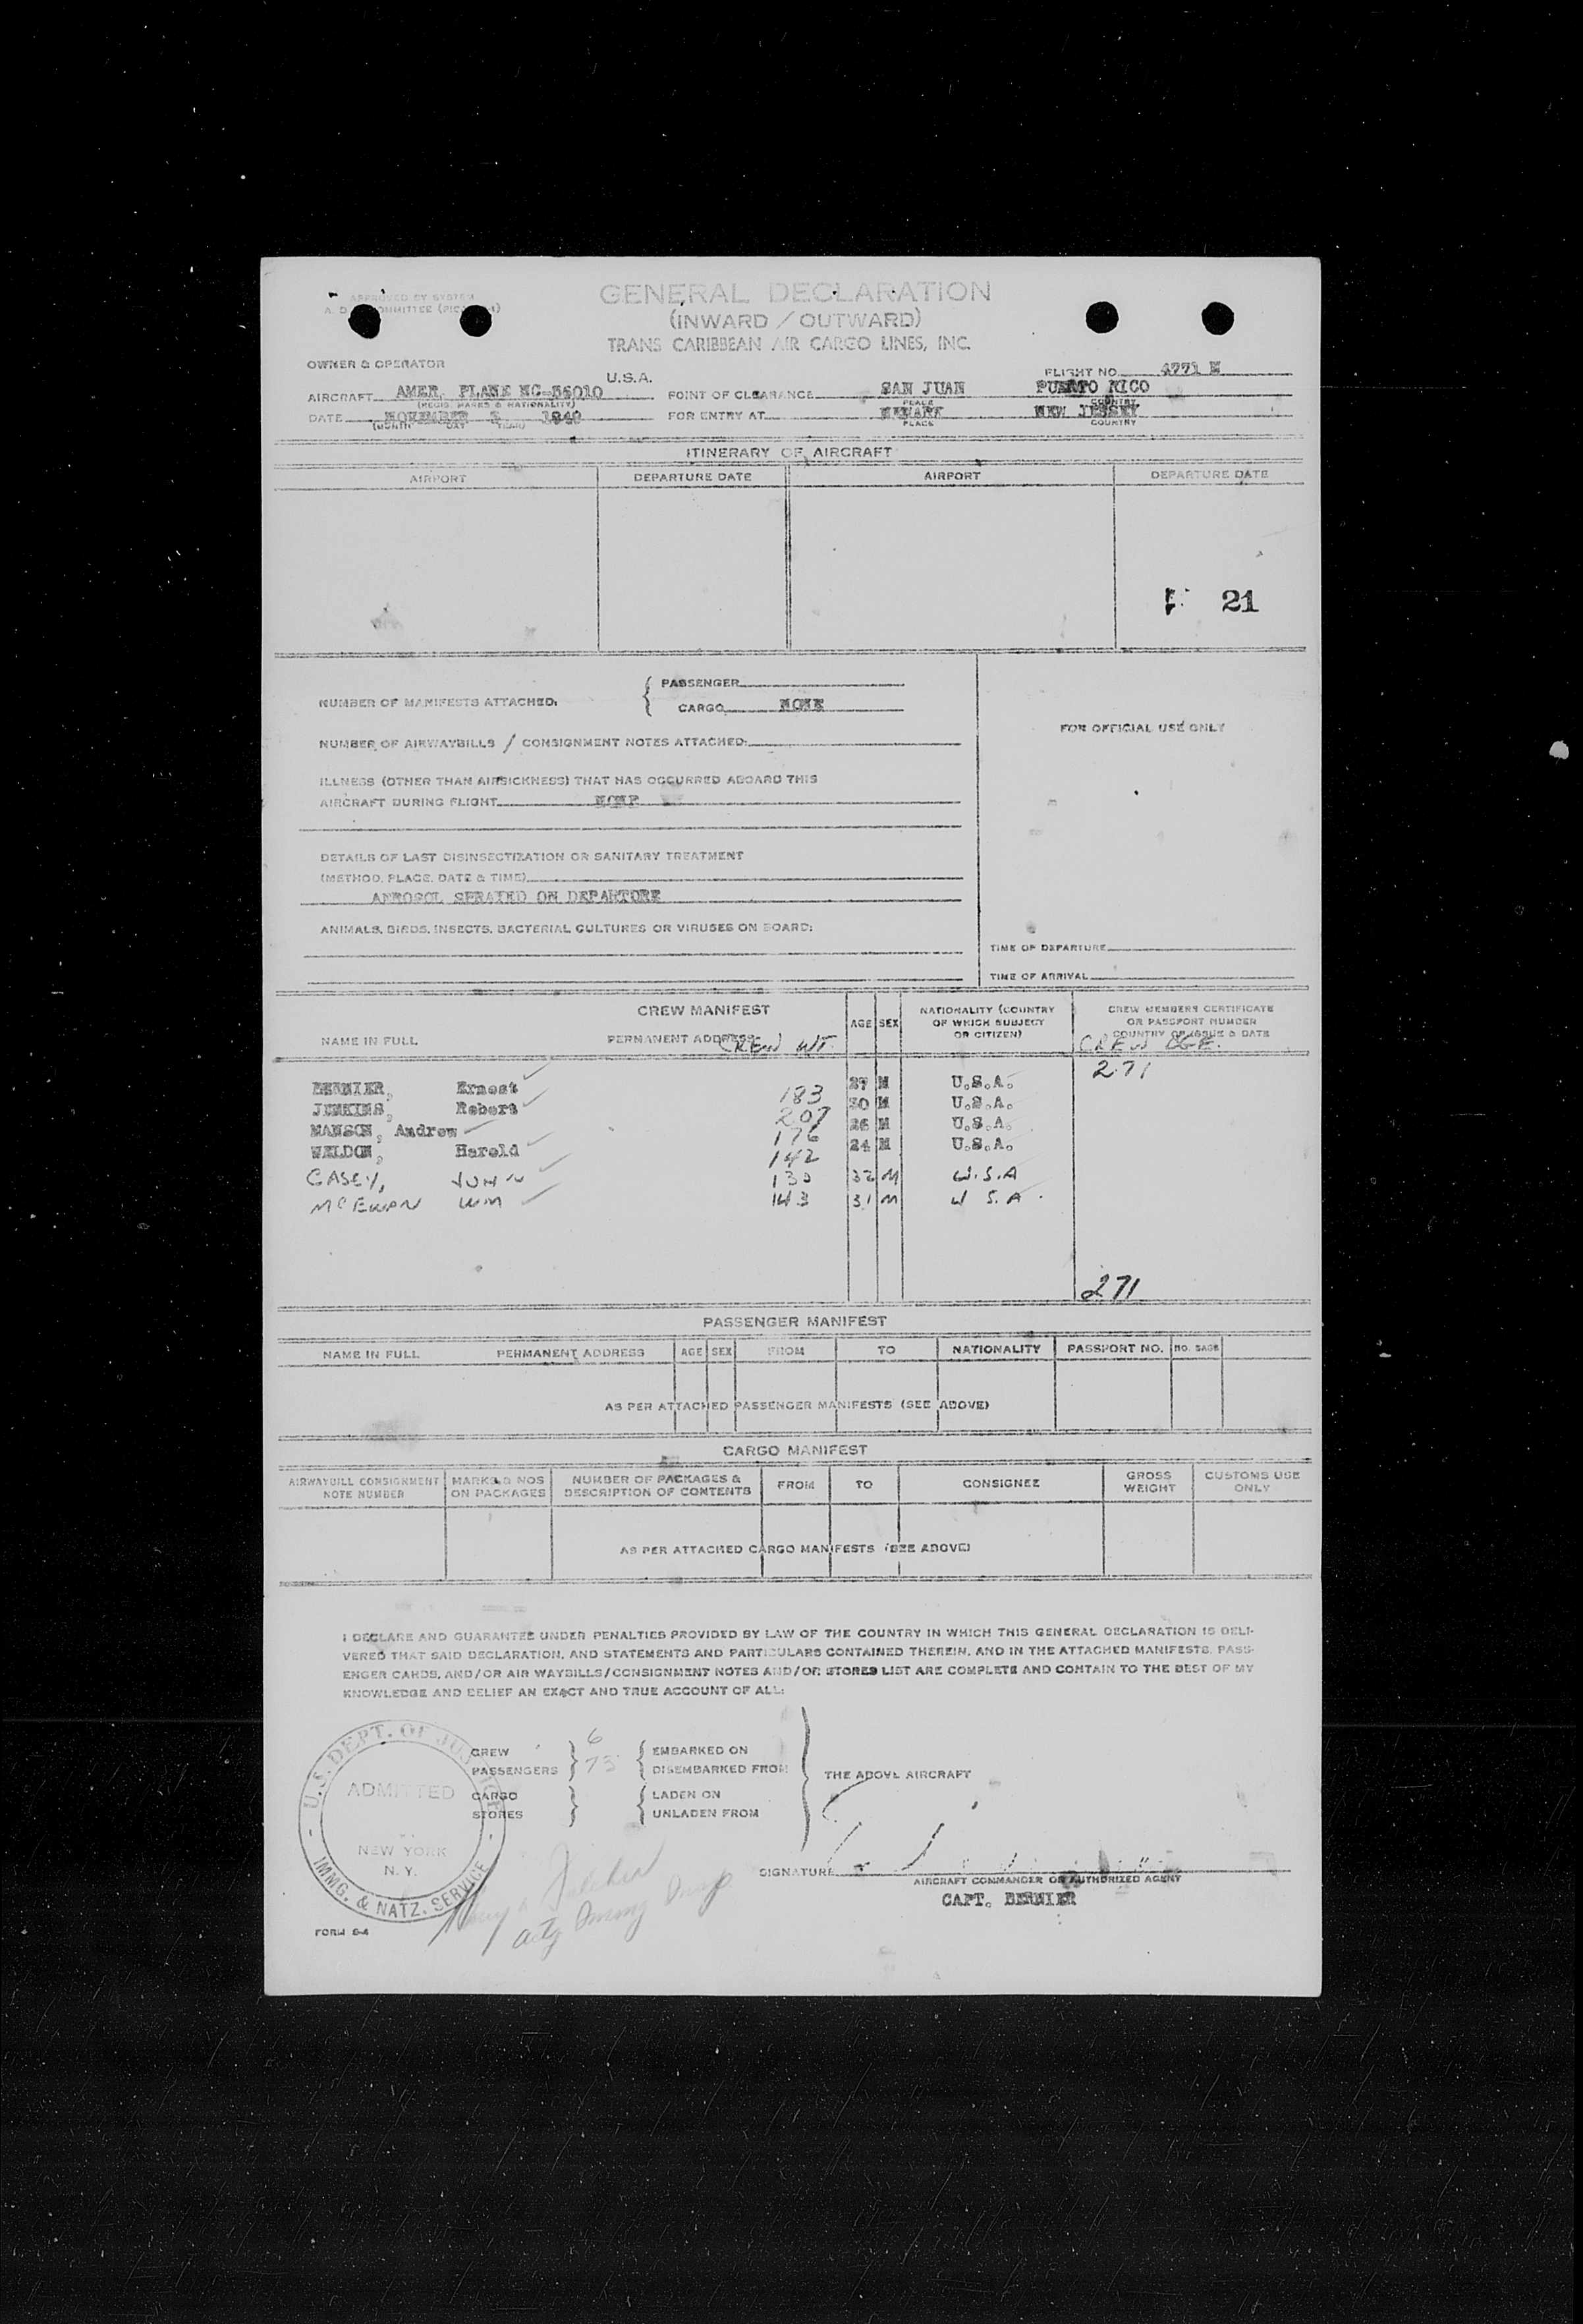 APPROVED BY SYSTEM
GENERAL DECLARATION
(INWARD / OUTWARD)
TRANS CARIBBEAN AIR CARGO LINES, INC.
OWNER & OPERATOR
U.S.A.
FLIGHT NO. 4771 N
AIRCRAFT AMER. PLANE NC-56010 POINT OF CLEARANCE SAN JUAN PUERTO RICO
(REGIS. MARKS & NATIONALITY) PLACE COUNTRY
DATE NOVEMBER FOR ENTRY AT NEWARK NEW JERSEY
(MONTH DAY YEAR) PLACE COUNTRY
ITINERARY OF AIRCRAFT
AIRPORT DEPARTURE DATE AIRPORT DEPARTURE DATE
21
PASSENGER
NUMBER OF MANIFESTS ATTACHED:
CARGO NONE
FOR OFFICIAL USE ONLY
NUMBER OF AIRWAYBILLS / CONSIGNMENT NOTES ATTACHED:
ILLNESS (OTHER THAN AIRSICKNESS) THAT HAS OCCURRED ABOARD THIS
AIRCRAFT DURING FLIGHT NONE
DETAILS OF LAST DISINSECTIZATION OR SANITARY TREATMENT
(METHOD, PLACE, DATE & TIME)
AEROSOL SPRAYED ON DEPARTURE
ANIMALS, BIRDS, INSECTS, BACTERIAL CULTURES OR VIRUSES ON BOARD:
TIME OF DEPARTURE
TIME OF ARRIVAL
CREW MANIFEST
NAME IN FULL PERMANENT ADDRESS CREW WT. AGE SEX NATIONALITY (COUNTRY OF WHICH SUBJECT OR CITIZEN) CREW MEMBERS CERTIFICATE OR PASSPORT NUMBER COUNTRY OF ISSUE & DATE
CREW BGE.
271
BERNIER, Ernest 183 37 M U.S.A.
JENKINS, Robert 207 30 M U.S.A.
MANSON, Andrew 176 26 M U.S.A.
WELDON, Harold 142 24 M U.S.A.
CASEY, JOHN 130 32 M U.S.A
MCEWAN WM 143 31 M U S.A.
271
PASSENGER MANIFEST
NAME IN FULL PERMANENT ADDRESS AGE SEX FROM TO NATIONALITY PASSPORT NO. NO. BAGS
AS PER ATTACHED PASSENGER MANIFESTS (SEE ABOVE)
CARGO MANIFEST
AIRWAYBILL CONSIGNMENT NOTE NUMBER MARKS & NOS ON PACKAGES NUMBER OF PACKAGES & DESCRIPTION OF CONTENTS FROM TO CONSIGNEE GROSS WEIGHT CUSTOMS USE ONLY
AS PER ATTACHED CARGO MANIFESTS (SEE ABOVE)
I DECLARE AND GUARANTEE UNDER PENALTIES PROVIDED BY LAW OF THE COUNTRY IN WHICH THIS GENERAL DECLARATION IS DELI-
VERED THAT SAID DECLARATION, AND STATEMENTS AND PARTICULARS CONTAINED THEREIN, AND IN THE ATTACHED MANIFESTS, PASS-
ENGER CARDS, AND/OR AIR WAYBILLS/CONSIGNMENT NOTES AND/OR STORES LIST ARE COMPLETE AND CONTAIN TO THE BEST OF MY
KNOWLEDGE AND BELIEF AN EXACT AND TRUE ACCOUNT OF ALL:
CREW 6 EMBARKED ON
PASSENGERS 73 DISEMBARKED FROM
THE ABOVE AIRCRAFT
CARGO LADEN ON
STORES UNLADEN FROM
U.S. DEPT. OF JUSTICE
ADMITTED
NEW YORK
N. Y.
IMMG. & NATZ. SERVICE
SIGNATURE
AIRCRAFT COMMANDER OR AUTHORIZED AGENT
CAPT. BERNIER
FORM